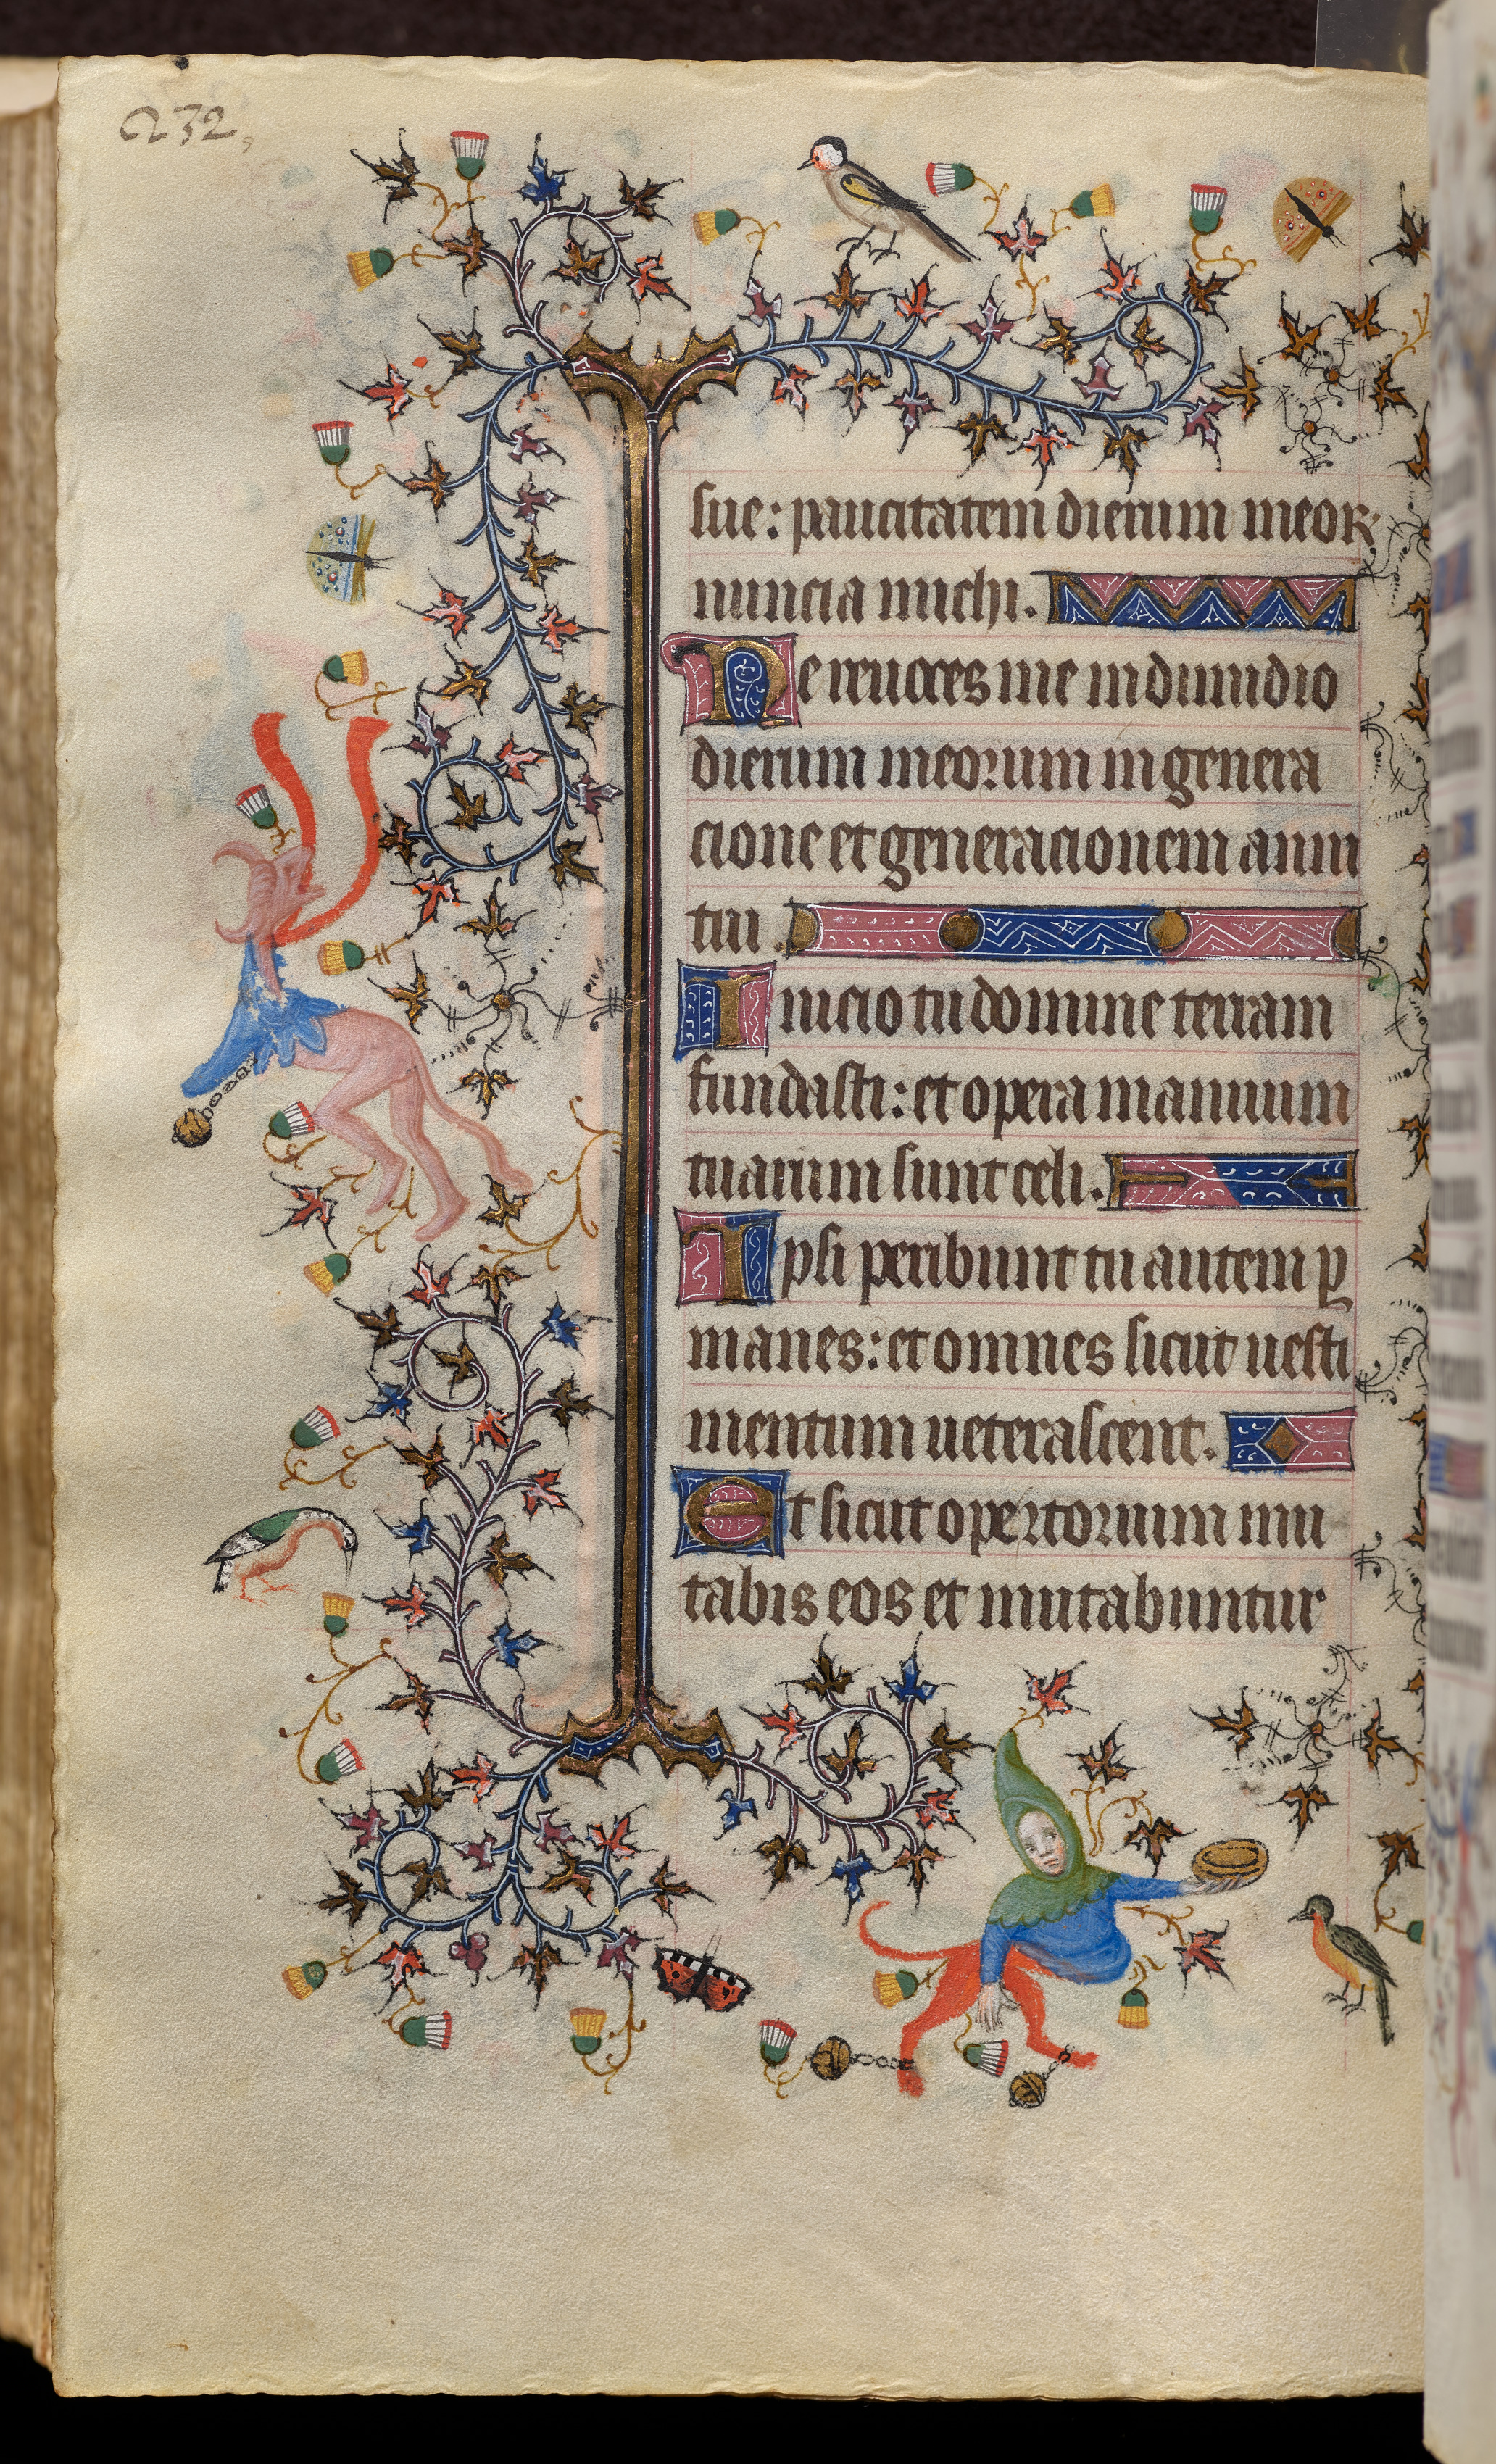 232
sue: paucitatem dierum meoꝝ
nuncia michi.
Ne reuoces me in dimidio
dierum meorum in genera
cione et generacionem anni
tui.
Inicio tu domine terram
fundasti: et opera manuum
tuarum sunt celi.
Ipsi peribunt tu autem ꝑ
manes: et omnes sicut uesti
mentum ueterascent.
Et sicut opertorium mu
tabis eos et mutabuntur